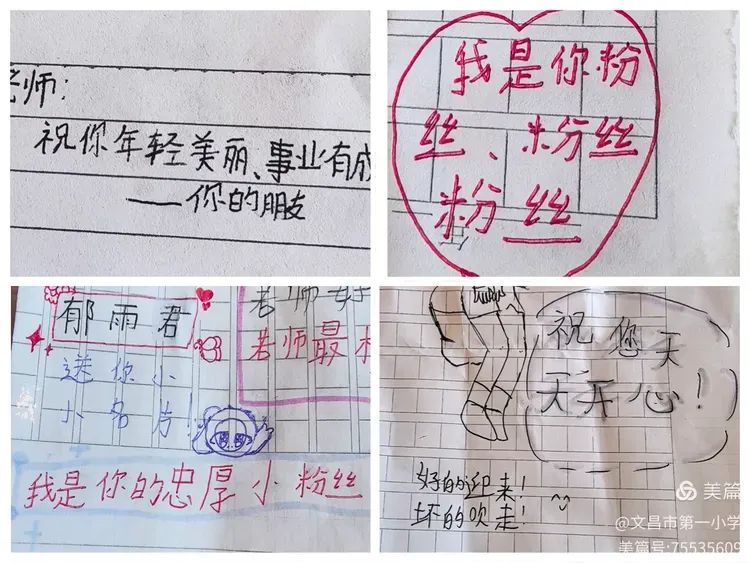 老师:
祝你年轻美丽、事业有成
——你的朋友
我是你粉
丝、粉丝
粉丝
郁雨君
送你小
小名片!
老师
老师最
我是你的忠厚小粉丝
祝您天
天开心!
好的迎来!
坏的吹走!
美篇
@文昌市第一小学
美篇号:75535609